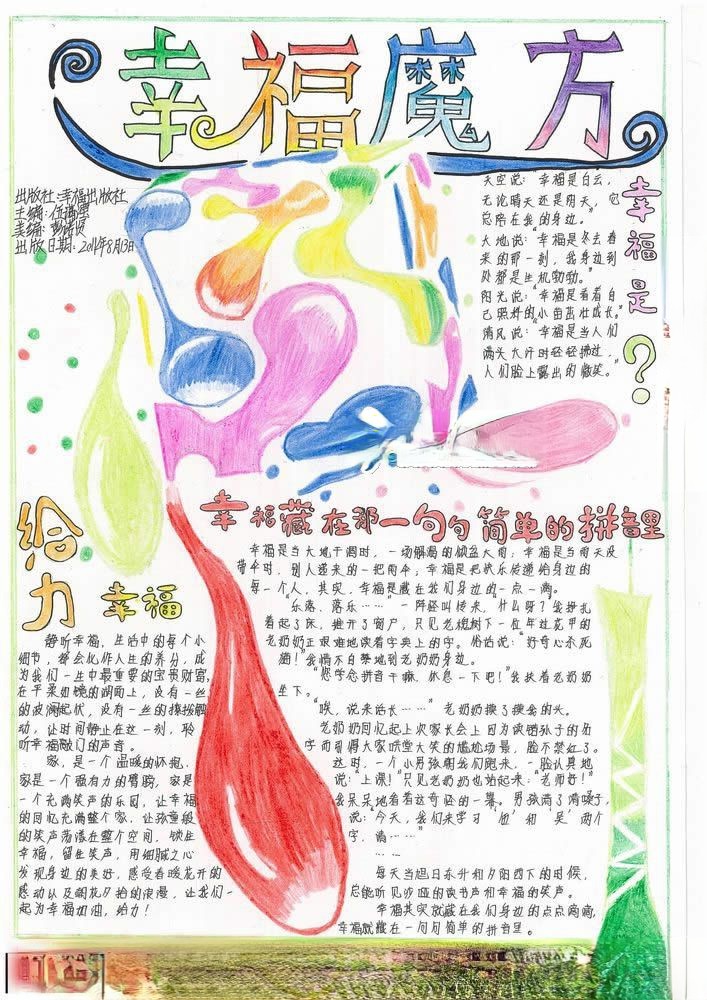 幸福魔方
出版社:幸福出版社
主编:
美编:
出版日期:2011年8月13日
幸福是?
天空说:“幸福是白云,
无论晴天还是阴天,它
总陪在我的身边。”
大地说:“幸福是冬去春
来的那一刹,我身边到
处都是生机勃勃。”
阳光说:“幸福是看着自
己照样的小苗茁壮成长。”
清风说:“幸福是当人们
满头大汗时轻轻拂过,
人们脸上露出的微笑。”
给力幸福
静听幸福,生活中的每个小
细节,都会化作人生的养分,成
为我们一生中最重要的宝贵财富,
在平柔如镜的湖面上,没有一丝
的波澜起伏,没有一丝的撩拨
动,让时间静止在这一刻,聆
听幸福敲门的声音。
家,是一个温暖的怀抱,
家是一个强有力的臂膀,家是
一个充满笑声的乐园,让幸福
的回忆充满整个家,让孩童般
的笑声荡漾在整个空间,锁住
幸福,留住笑声,用细腻之心
发现身边的美好,感受春暖花开的
感动以及朝花夕拾的浪漫,让我们一
起为幸福加油,给力!
幸福藏在那一句句简单的拼音里
幸福是当大地干涸时,一场解渴的倾盆大雨;幸福是当雨天没
带伞时,别人递来的一把雨伞;幸福是把快乐传递给身边的
每一个人,其实,幸福是藏在我们身边的一点一滴。
“乐落,落乐……”一阵怪叫传来,什么呀?我挣扎
着起了床,推开了窗户,只见老槐树下一位年过花甲的
老奶奶正艰难地读着字典上的字。俗话说:“好奇心杀死
猫!”我情不自禁地到老奶奶身边。
“您学念拼音干嘛,休息一下吧!”我扶着老奶奶
坐下。
“唉,说来话长……”老奶奶摸了摸金的头。
老奶奶回忆起上次家长会上因为读错孙子的历
字而引得大家哄堂大笑的尴尬场景,脸不禁红了。
这时,一个小男孩朝我们跑来,一脸认真地
说:“上课!”只见老奶奶也站起来:“老师好!”
我呆呆地看着这奇怪的一幕。男孩清了清嗓子,
说:“今天,我们来学习‘旭’和‘吴’两个
字,请……”
……
每天当旭日东升和夕阳西下的时候,
总能听见沙哑的读书声和幸福的笑声。
幸福其实就藏在我们身边的点点滴滴,
幸福就藏在一句句简单的拼音里。